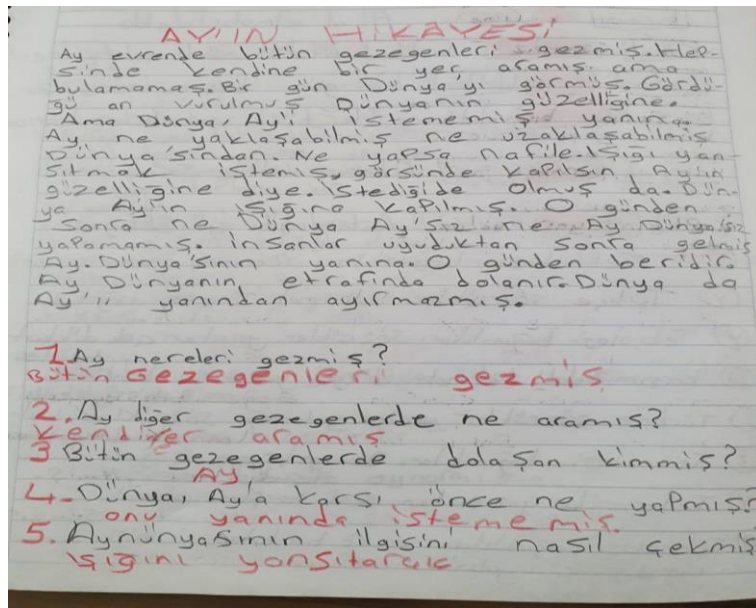 AY'IN HİKAYESİ
Ay evrende bütün gezegenleri gezmiş. Hep-
sinde kendine bir yer aramış ama
bulamamaş. Bir gün Dünya'yı görmüş. Gördü-
ğü an vurulmuş Dünyanın güzelliğine.
Ama Dünya, Ay'ı istememiş yanına.
Ay ne yaklaşabilmiş ne uzaklaşabilmiş
Dünya'sından. Ne yapsa nafile. Işığı yan-
sıtmak istemiş, görsünde kapılsın Ay'ın
güzelliğine diye. İstediğide olmuş da. Dün-
ya Ay'ın ışığına kapılmış. O günden
sonra ne Dünya Ay'sız ne Ay Dünya'sız
yapamamış. İnsanlar uyuduktan sonra gelmiş
Ay. Dünya'sının yanına. O günden beridir.
Ay Dünyanın etrafında dolanır. Dünya da
Ay'ı yanından ayırmazmış.
1. Ay nereleri gezmiş?
Bütün Gezegenleri gezmiş
2. Ay diğer gezegenlerde ne aramış?
kendiyer aramış
3 Bütün gezegenlerde dolaşan kimmiş?
Ay
4. Dünya, Ay'a karşı önce ne yapmış?
onu yanında istememiş.
5. Aynünyasının ilgisini nasıl çekmiş
ışığını yansıtarak